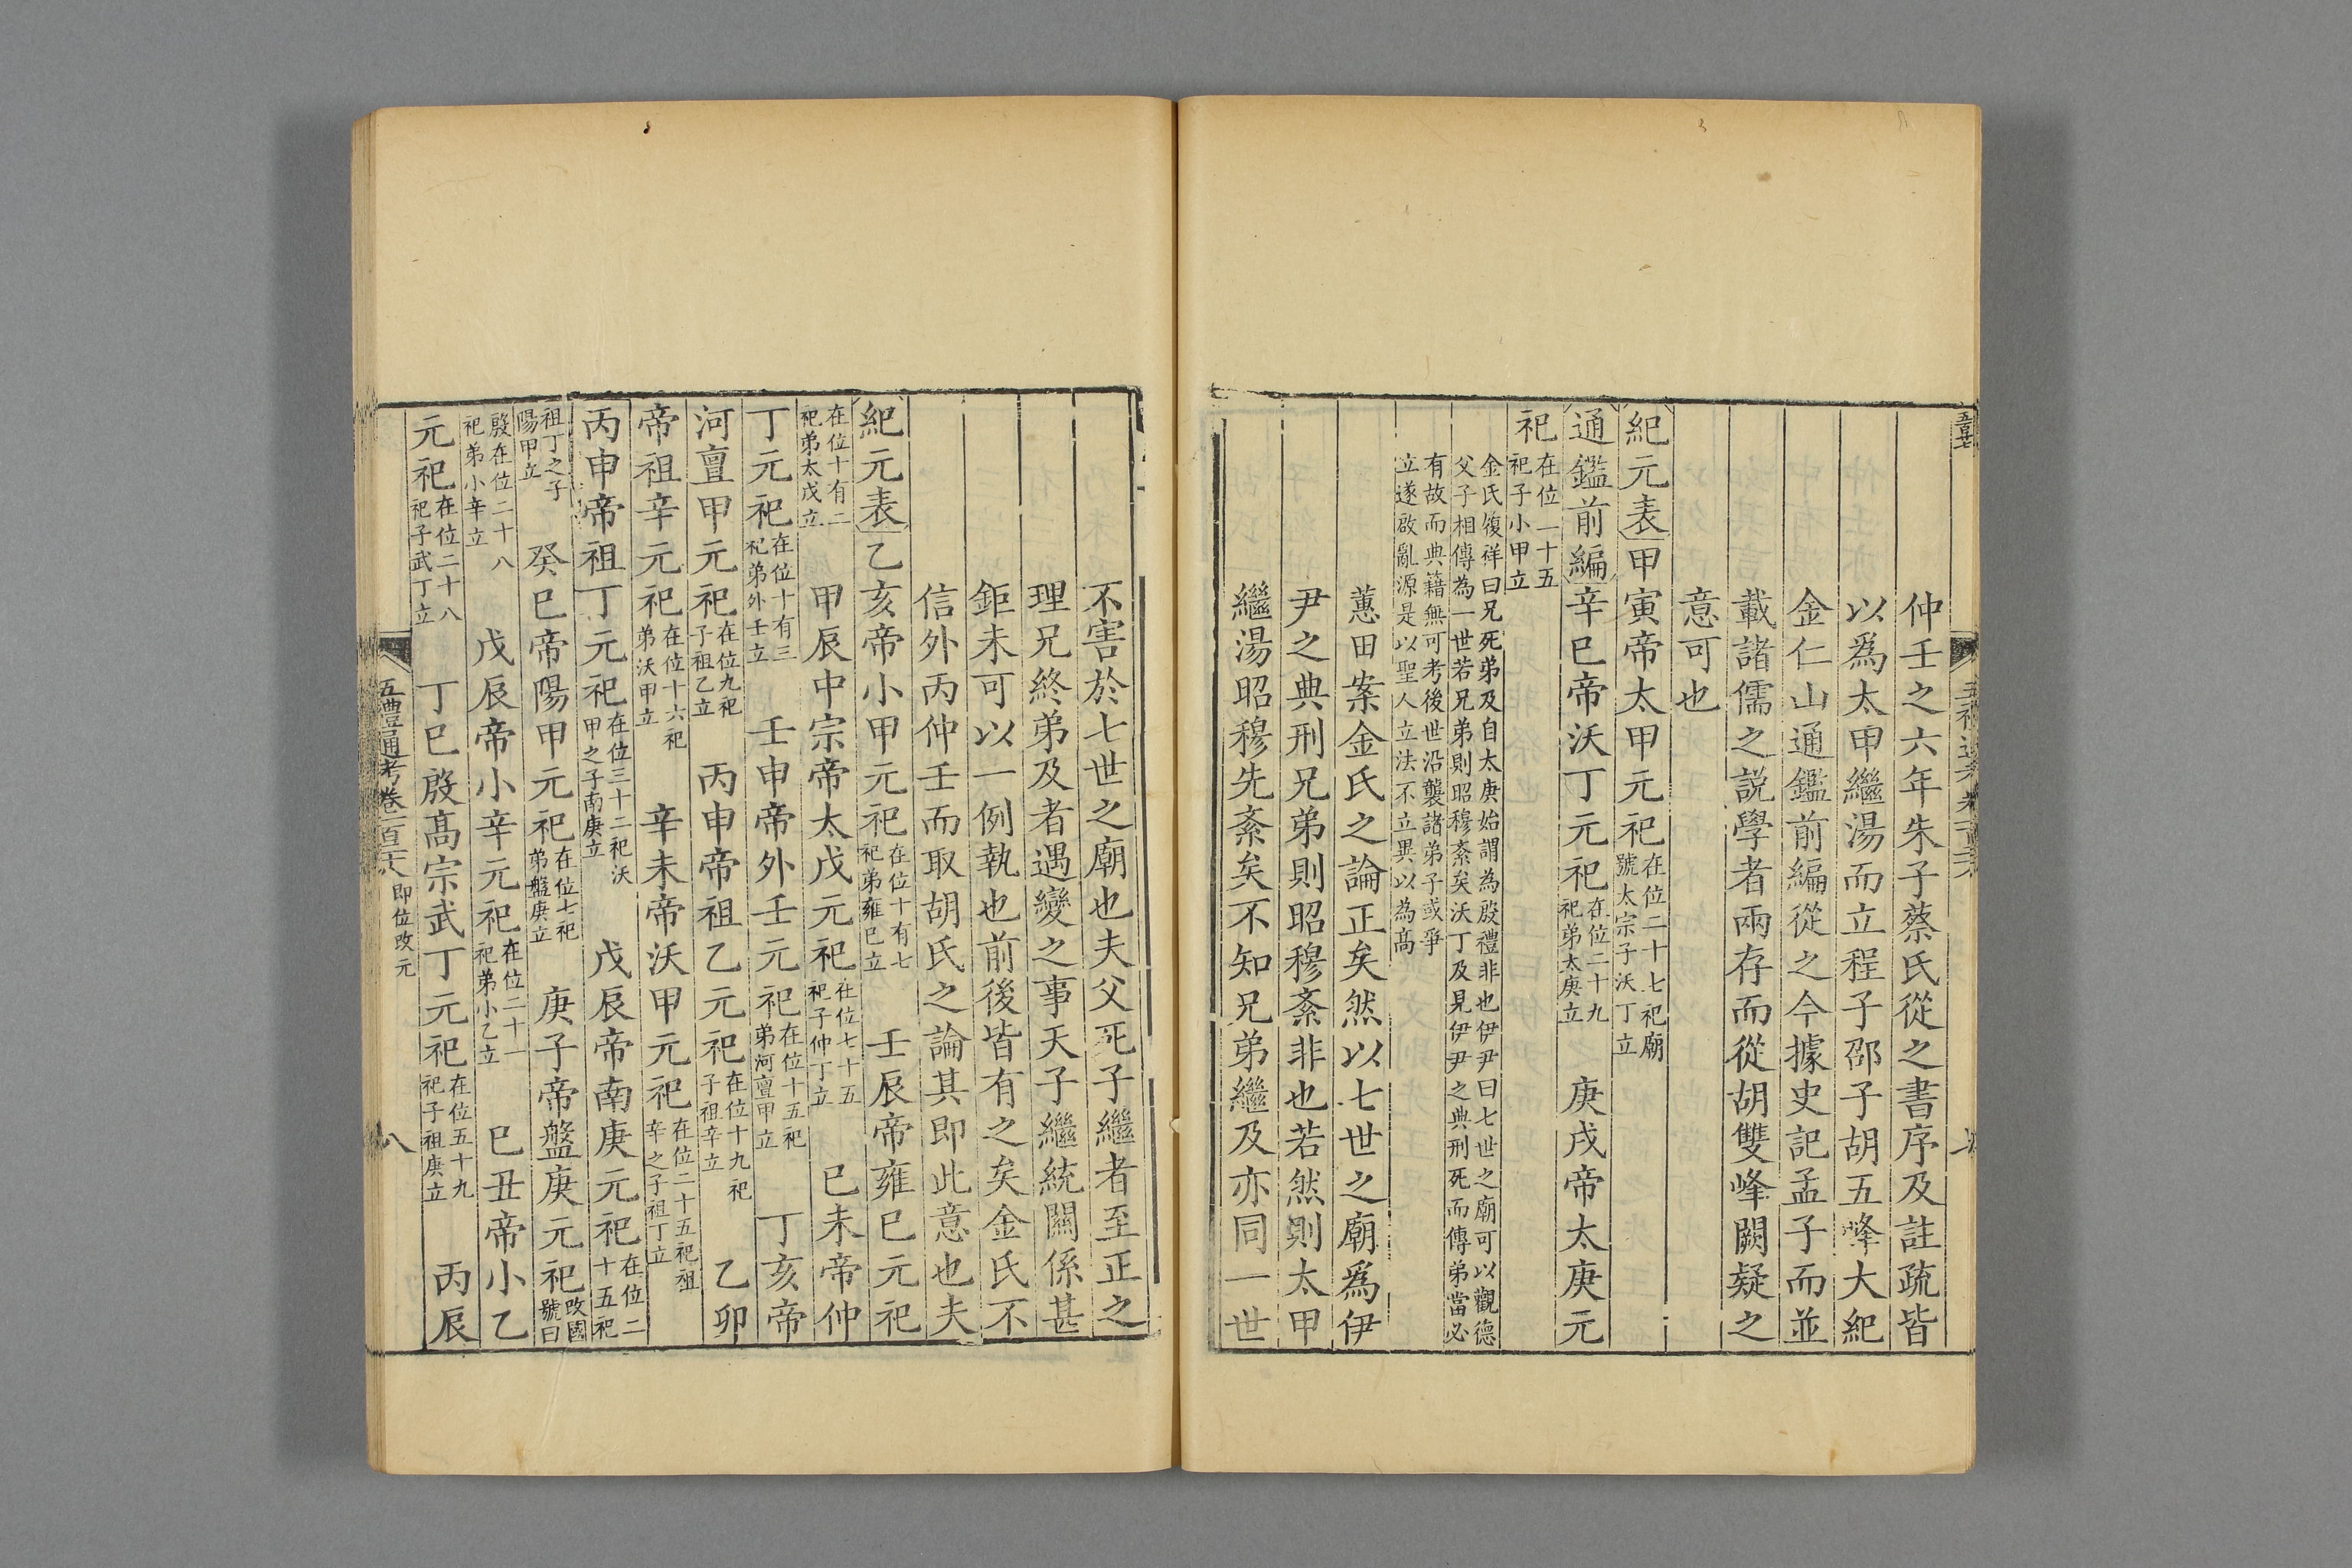 仲壬之六年朱子蔡氏從之書序及註疏皆
以爲太甲繼湯而立程子邵子胡五峰大紀
金仁山通鑑前編從之今據史記孟子而並
載諸儒之説學者兩存而從胡雙峰闕疑之
意可也
紀元表甲寅帝太甲元祀在位二十七祀廟號太宗子沃丁立
通鑑前編辛巳帝沃丁元祀在位二十九祀弟太庚立 庚戌帝太庚元
祀在位一十五祀子小甲立
金氏履祥曰兄死弟及自太庚始謂為殷禮非也伊尹曰七世之廟可以觀德
父子相傳為一世若兄弟則昭穆紊矣沃丁及見伊尹之典刑死而傳弟當必
有故而典籍無可考後世沿襲諸弟子或爭
立遂啟亂源是以聖人立法不立異以為高
蕙田案金氏之論正矣然以七世之廟爲伊
尹之典刑兄弟則昭穆紊非也若然則太甲
繼湯昭穆先紊矣不知兄弟繼及亦同一世
不害於七世之廟也夫父死子繼者至正之
理兄終弟及者遇變之事天子繼統關係甚
鉅未可以一例執也前後皆有之矣金氏不
信外丙仲壬而取胡氏之論其即此意也夫
紀元表乙亥帝小甲元祀在位十有七祀弟雍巳立 壬辰帝雍巳元祀
在位十有二祀弟太戊立 甲辰中宗帝太戊元祀在位七十五祀子仲丁立 巳未帝仲
丁元祀在位十有三祀弟外壬立 壬申帝外壬元祀在位十五祀弟河亶甲立 丁亥帝
河亶甲元祀在位九祀子祖乙立 丙申帝祖乙元祀在位十九祀子祖辛立 乙卯
帝祖辛元祀在位十六祀弟沃甲立 辛未帝沃甲元祀在位二十五祀祖辛之子祖丁立
丙申帝祖丁元祀在位三十二祀沃甲之子南庚立 戊辰帝南庚元祀在位二十五祀
祖丁之子陽甲立 癸巳帝陽甲元祀在位七祀弟盤庚立 庚子帝盤庚元祀改國號曰
殷在位二十八祀弟小辛立 戊辰帝小辛元祀在位二十一祀弟小乙立 巳丑帝小乙
元祀在位二十八祀子武丁立 丁巳殷髙宗武丁元祀在位五十九祀子祖庚立 丙辰
五禮通考卷一百二十六 即位改元
八